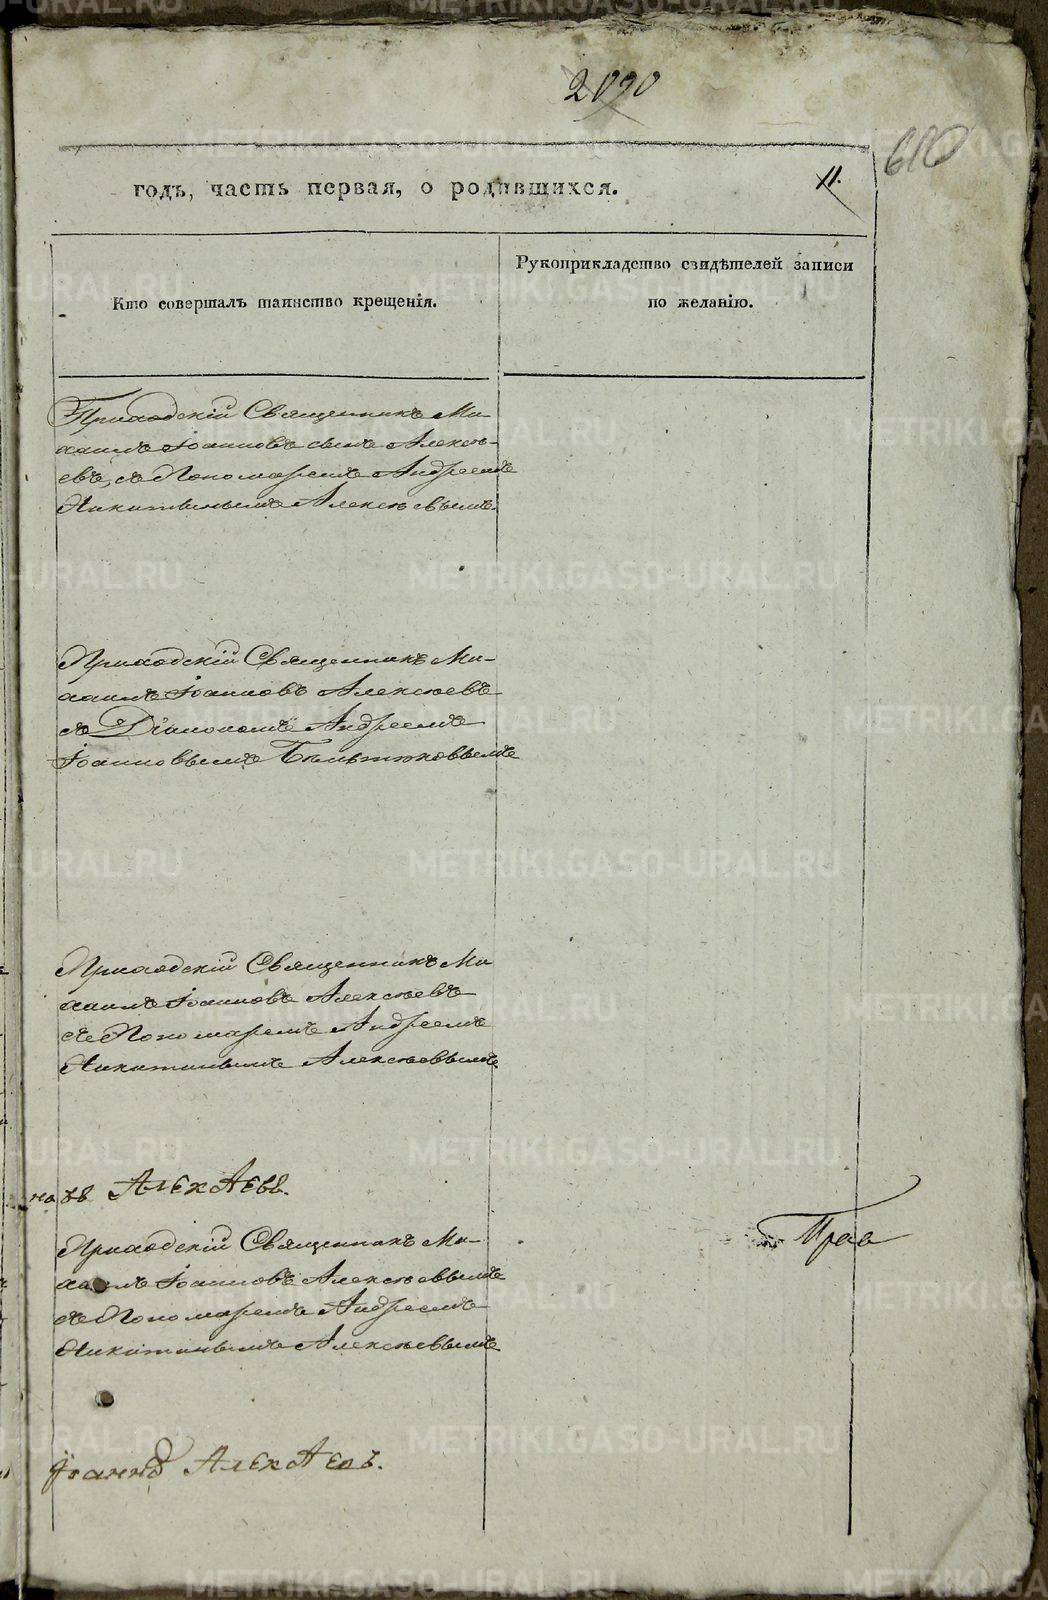 2090
610
годъ, часть первая, о родившихся.
11.
Кто совершалъ таинство крещенія.
Рукоприкладство свидѣтелей записи
по желанію.
Приходскій Священникъ Ми-
хаилъ Іоанновъ сынъ Алексѣ-
евъ, съ Пономаремъ Андреемъ
Никитинымъ Алексѣевымъ.
Приходскій Священникъ Ми-
хаилъ Іоанновъ Алексѣевъ
съ Діакономъ Андреемъ
Іоанновымъ
Приходскій Священникъ Ми
хаилъ Іоанновъ Алексѣевъ
съ Пономаремъ Андреемъ
Никитинымъ Алексѣевымъ
Приходскій Священникъ Ми-
хаилъ Іоанновъ Алексѣевымъ
съ Пономаремъ Андреемъ
Никитинымъ Алексѣевымъ
Іоаннъ
METRIKI.GASO-URAL.RU